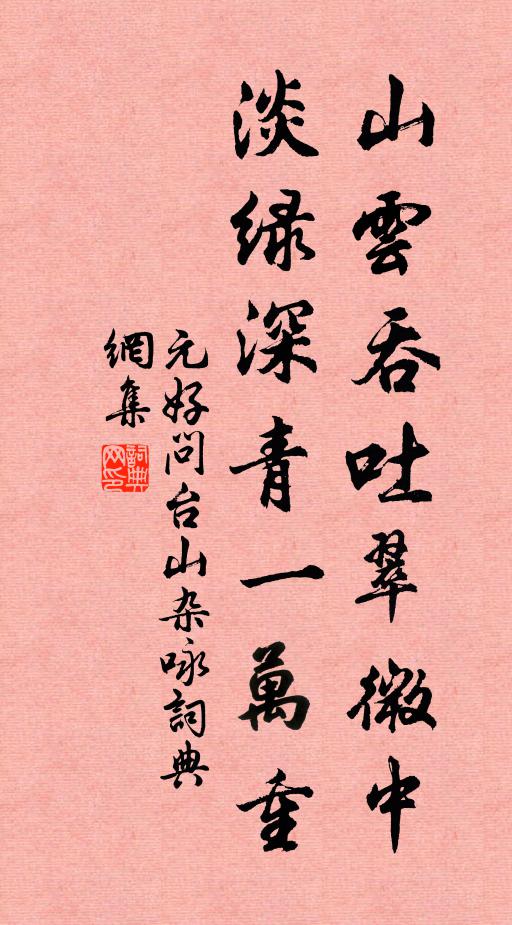 山雲吞吐翠微中
淡绿深青一萬重
元好问台山杂咏詞典
網集
詞典
网印